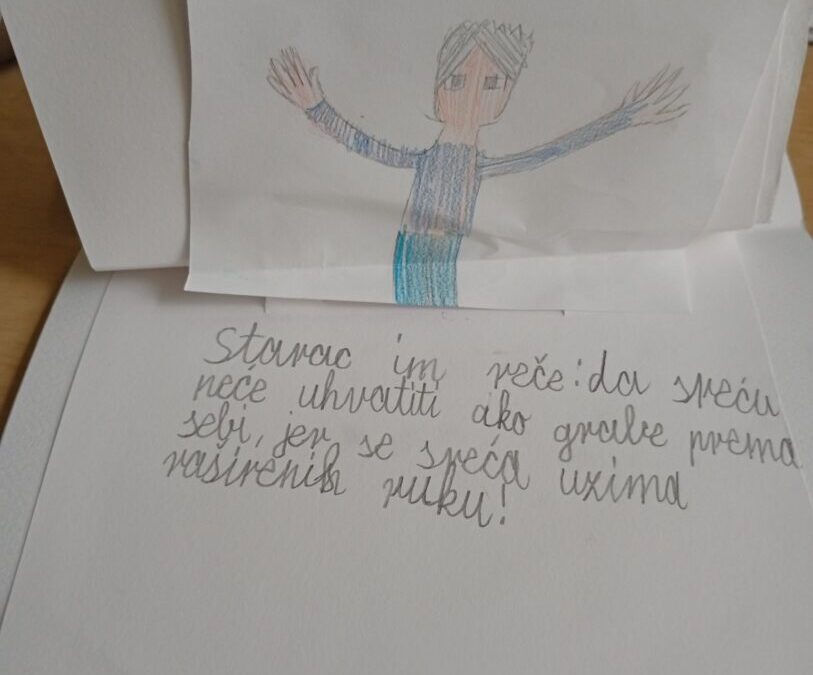 Starac im reče: da sreću
neće uhvatiti ako grabe prema
sebi, jer se sreća uzima
raširenih ruku!